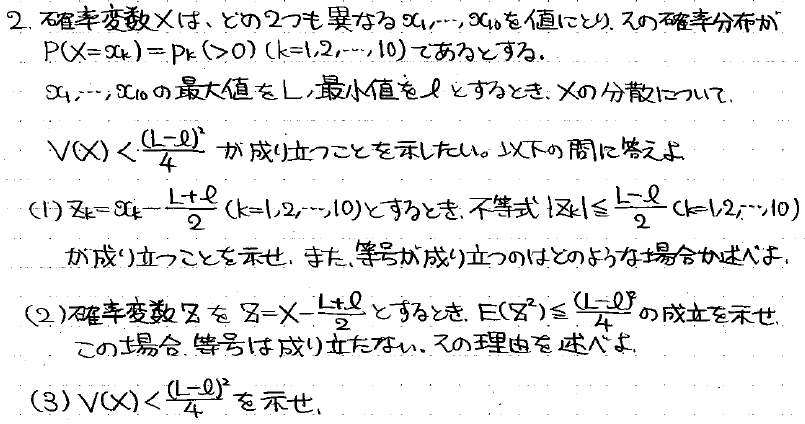 2. 確率変数Xは、どの2つも異なるx₁,…,x₁₀を値にとり、その確率分布が
P(X=xₖ)=pₖ(>0) (k=1,2,…,10)であるとする.
x₁,…,x₁₀の最大値をL,最小値をℓとするとき、Xの分散について、
V(X)<(L-ℓ)²/4 が成り立つことを示したい。以下の問に答えよ.
(1) zₖ=xₖ-(L+ℓ)/2 (k=1,2,…,10)とするとき、不等式|zₖ|≦(L-ℓ)/2 (k=1,2,…,10)
が成り立つことを示せ. また、等号が成り立つのはどのような場合か述べよ.
(2)確率変数ZをZ=X-(L+ℓ)/2とするとき、E(Z²)≦(L-ℓ)²/4の成立を示せ.
この場合、等号は成り立たない. その理由を述べよ.
(3) V(X)<(L-ℓ)²/4を示せ.